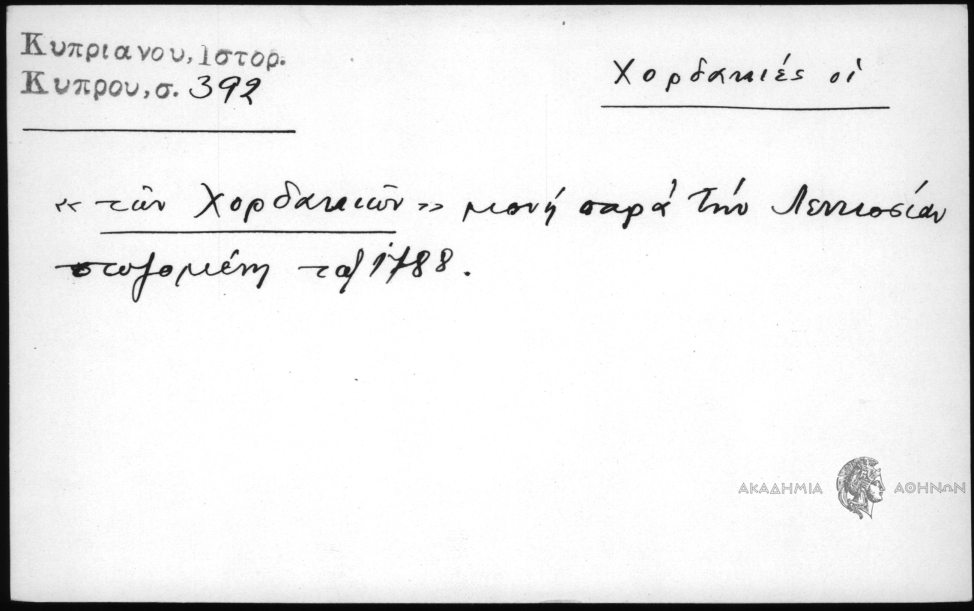 Κυπριανου, Ιστορ.
Κυπρου, σ. 392
Χορδακιές οἱ
« τῶν Χορδακιῶν » μονή παρά τήν Λευκοσίαν
σωζομένη τῷ 1788.
ΑΚΑΔΗΜΙΑ ΑΘΗΝΩΝ